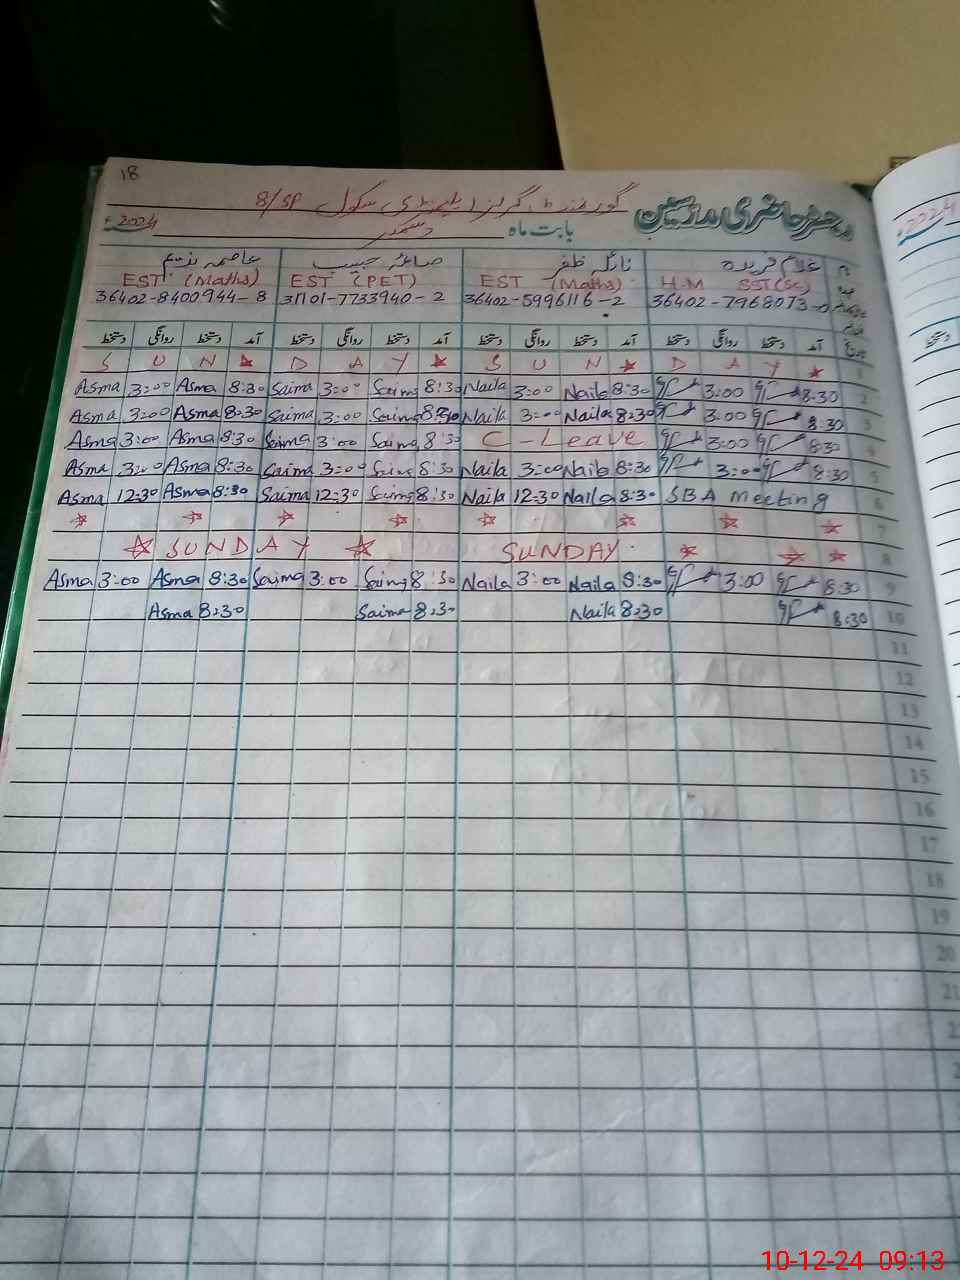 18
رجسٹر حاضری مدرسین گورنمنٹ گرلز ایلیمنٹری سکول 8/SP
بابت ماہ دسمبر 2024ء
غلام فریدہ نائلہ ظفر صائمہ حبیب عاصمہ
EST (Maths) EST (PET) EST (Maths) H.M SST(Sc)
36402-8400944-8 31101-7733940-2 36402-5996116-2 36402-7968073-0
تاریخ آمد دستخط روانگی دستخط آمد دستخط روانگی دستخط آمد دستخط روانگی دستخط آمد دستخط روانگی دستخط
S U N D A Y S U N D A Y 1
Asma 3:00 Asma 8:30 Saima 3:00 Saima 8:30 Naila 3:00 Naila 8:30 3:00 8:30 2
Asma 3:00 Asma 8:30 Saima 3:00 Saima 8:30 Naila 3:00 Naila 8:30 3:00 8:30 3
Asma 3:00 Asma 8:30 Saima 3:00 Saima 8:30 C-Leave 3:00 8:30 4
Asma 3:00 Asma 8:30 Saima 3:00 Saima 8:30 Naila 3:00 Naila 8:30 3:00 8:30 5
Asma 12:30 Asma 8:30 Saima 12:30 Saima 8:30 Naila 12:30 Naila 8:30 SBA Meeting 6
7
SUNDAY SUNDAY 8
Asma 3:00 Asma 8:30 Saima 3:00 Saima 8:30 Naila 3:00 Naila 8:30 3:00 8:30 9
Asma 8:30 Saima 8:30 Naila 8:30 8:30 10
11
12
13
14
15
16
17
18
19
20
21
10-12-24 09:13